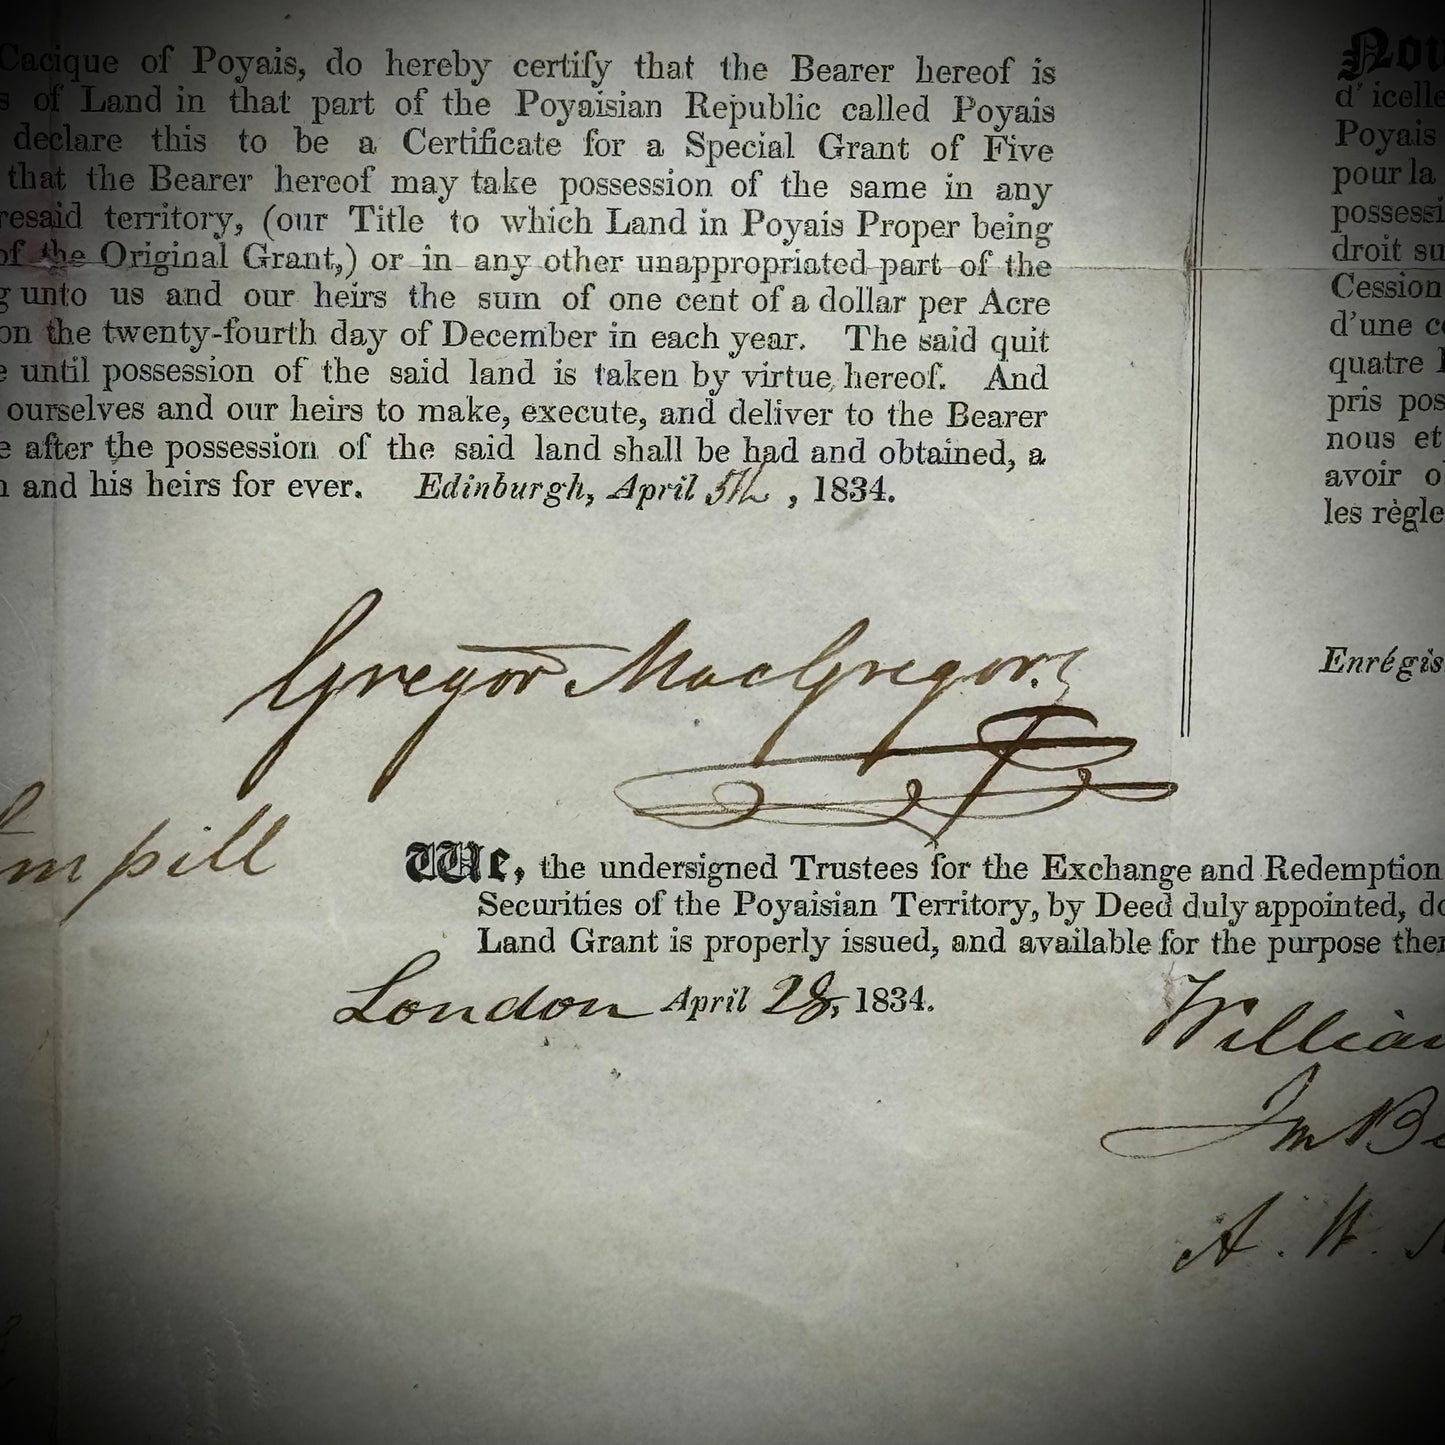 Cacique of Poyais, do hereby certify that the Bearer hereof is
s of Land in that part of the Poyaisian Republic called Poyais
declare this to be a Certificate for a Special Grant of Five
that the Bearer hereof may take possession of the same in any
resaid territory, (our Title to which Land in Poyais Proper being
of the Original Grant,) or in any other unappropriated part of the
g unto us and our heirs the sum of one cent of a dollar per Acre
on the twenty-fourth day of December in each year. The said quit
e until possession of the said land is taken by virtue hereof. And
ourselves and our heirs to make, execute, and deliver to the Bearer
e after the possession of the said land shall be had and obtained, a
n and his heirs for ever. Edinburgh, April 5th, 1834.
Gregor MacGregor.
mpill
We, the undersigned Trustees for the Exchange and Redemption
Securities of the Poyaisian Territory, by Deed duly appointed, do
Land Grant is properly issued, and available for the purpose ther
London April 28, 1834.
William
Jm Be
A. W.
Nou
d'icelle
Poyais
pour la
possessi
droit su
Cession
d'une ce
quatre
pris pos
nous et
avoir o
les règle
Enrégis